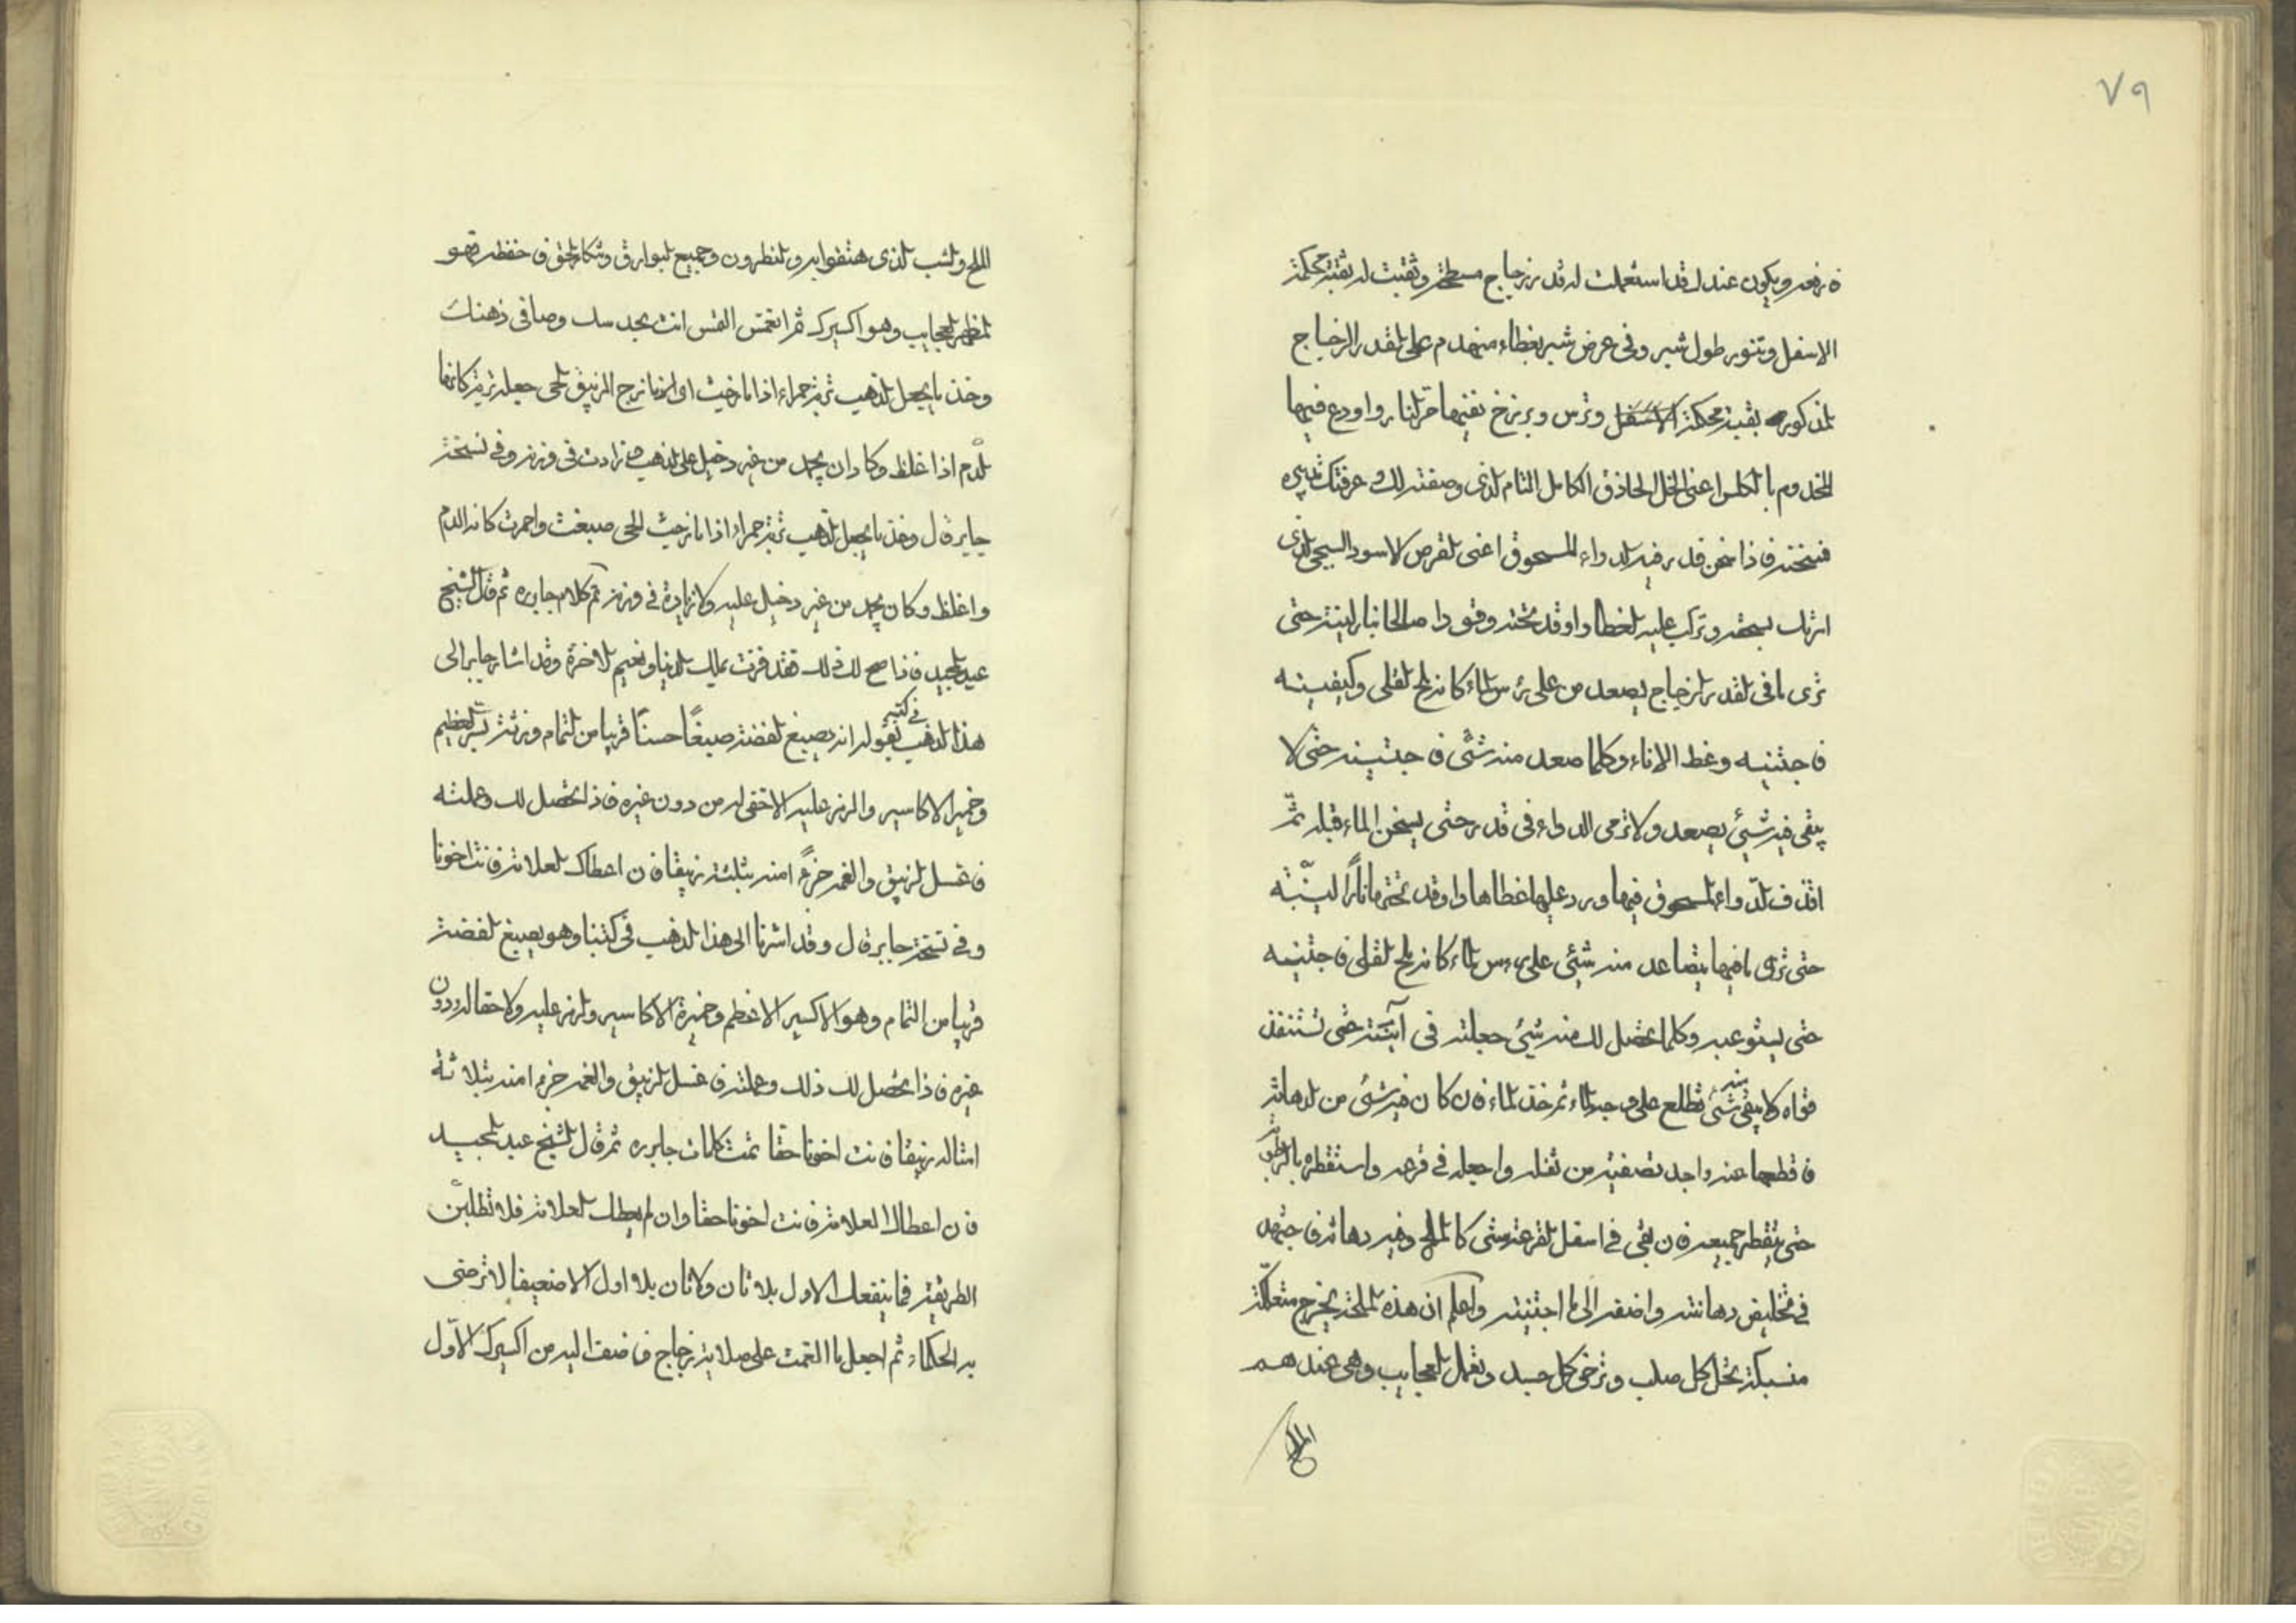 ٧٩
فارفعه ويكون عندك قد استعملت له قدر زجاج مسطحة وثقبت له ثقبة محكمة
الاسفل وتنور طول شبر وفي عرض شبر بغطاء منهدم على القدر الزجاج
المذكور بقبة محكمة الاسفل وترس وبرزخ
المخدوم بالكلس اعني الخل الحاذق الكامل التام الذي وصفته لك وعرفتك تدبيره
فسخنه فاذا سخن فدر فيه الدواء المسحوق اعني القرص الاسود السبجي الذي
امرتك بسحقه وتركب عليه الغطاء واوقد تحته وقودا صالحا نار لينة حتى
ترى ما في القدر الزجاج يصعد من على رأس الماء كانه ملح القلي وكيفيته
فاجتنيه وغط الاناء وكلما صعد منه شئ فاجتنيه حتى لا
يبقى فيه شئ يصعد ولا ترمي الدواء في قدر حتى يسخن الماء قبله ثم
اقذف الدواء المسحوق فيها ورد عليها غطاها واوقد تحتها نارًا لينّة
حتى ترى ما فيها يتصاعد منه شئ على رأس الماء كانه ملح القلي فاجتنيه
حتى يستوعبه وكلما تحصل لك منه شئ جعلته في آنية حتى تستنفذ
قواه ولا يبقى منه شئ تطلع على وجه الماء ثم خذ الماء فان كان فيه شئ من الدهانة
فاقطعها عنه واجد تصفيته من ثفله واجعله في قرعة واستقطره بالرطوبة
حتى يقطر جميعه فان بقي في اسفل القرعة شئ كالملح وفيه دهانة فاجتهد
في تخليص دهانته واضفه الى ما اجتنيته واعلم ان هذه الملحة يخرج متعلكة
منسبكة تحل كل صلب وترخى كل جسد وتعمل العجايب وهي عندهم
الملح
الملح والشب الذي هتفوا به والنظرون وجميع البوارق وتنكار الحق فاحفظه فهو
المظهر العجايب وهو اكسيرك ثم انغمس النفس انت بجد
وخذ ما يجعل الذهب تربة حمراء اذا مازجت اي اذا مازج الزيبق الحي جعله تربة كانها
الدّم اذا غلظ وكاد ان يجمد من غير دخيل على الذهب ولا زادت في وزنه وفي نسخة
جابر قال وخذ ما يجعل الذهب تربة حمراء اذا مازجت الحي صبغت واحمرت كانه الدم
واغلظ وكان يجمد من غير دخيل عليه ولا زيادة في وزنه تم كلام جابره ثم قال الشيخ
عبد المجيد فاذا صح لك ذلك فقد فزت بملك الدنيا ونعيم الاخرة وقد اشار جابر الى
هذا الذهب في كتبه بقوله انه يصبغ الفضة صبغًا حسنًا قريبا من التمام وزنته بسر العظيم
وخمير الاكاسير والرمز عليه لاخفى له من دون غيره فاذا تحصل لك وعملته
فاغسل الزيبق والغمه جزءًا منه بثلثة زيبقا فان اعطاك العلامة فانت اخونا
وفي نسخة جابر قال وقد اشرنا الى هذا الذهب في كتبنا وهو يصبغ الفضة
قريبا من التمام وهو الاكسير الاعظم وخميرة الاكاسير والرمز عليه ولاحقا له دون
غيره فاذا تحصل لك ذلك وعملته فاغسل الزيبق والغمه جزءا منه بثلاثة
امثاله زيبقا فانت اخونا حقا تمت كلمات جابره ثم قال الشيخ عبد المجيد
فان اعطاك العلامة فانت اخونا حقا وان لم يعطك العلامة فلا تطلبنّ
الطريقة فما ينفعك الاول بلا ثان ولا ثان بلا اول الا ضعيفا لا ترضى
به الحكماء ثم اجعل ما الغمت على صلاية زجاج فاضف اليه من اكسيرك الاوّل